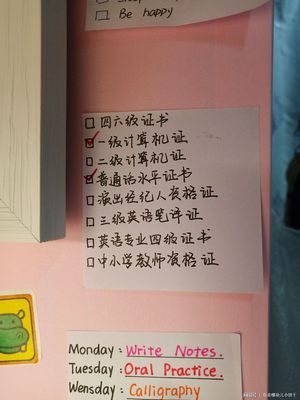 Be happy
四六级证书
一级计算机证
二级计算机证
普通话水平证书
演出经纪人资格证
三级英语笔译证
英语专业四级证书
中小学教师资格证
Monday : Write Notes.
Tuesday : Oral Practice.
Wensday : Calligraphy